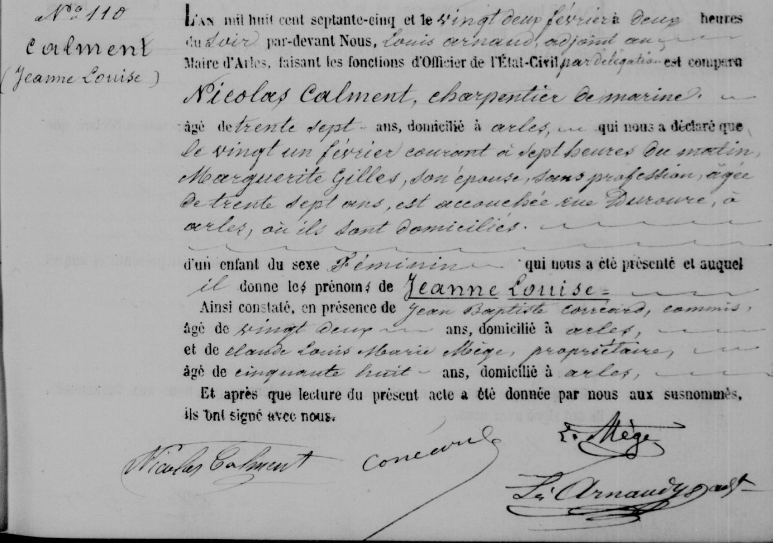 N.º 110
Calment
(Jeanne Louise)
L'AN mil huit cent septante-cinq et le vingt deux février à deux heures
du soir par-devant Nous, Louis Arnaud, adjoint au
Maire d'Arles, faisant les fonctions d'Officier de l'État-Civil par délégation est comparu
Nicolas Calment, charpentier de marine.
âgé de trente sept ans, domicilié à arles, qui nous a déclaré que
le vingt un février courant à sept heures du matin,
Marguerite Gilles, son épouse, sans profession, âgée
de trente sept ans, est accouchée rue Duroure, à
arles, où ils sont domiciliés.
d'un enfant du sexe Féminin qui nous a été présenté et auquel
il donne les prénoms de Jeanne Louise
Ainsi constaté, en présence de Jean Baptiste Correard, commis,
âgé de vingt deux ans, domicilié à arles,
et de claude Louis Marie Mège, propriétaire,
âgé de cinquante huit ans, domicilié à arles,
Et après que lecture du présent acte a été donnée par nous aux susnommés,
ils ont signé avec nous.
Nicolas Calment Correard L. Mège
Ls Arnaud adjt